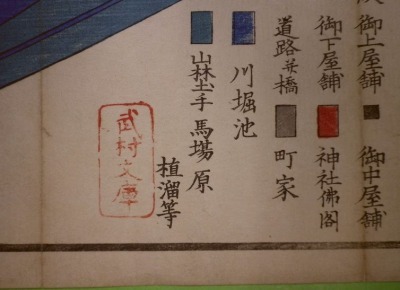 御上屋舗 御中屋舗
御下屋舗 神社佛閣
道路并橋 町家
川堀池
山林土手 馬場 原
植溜等
武村文庫